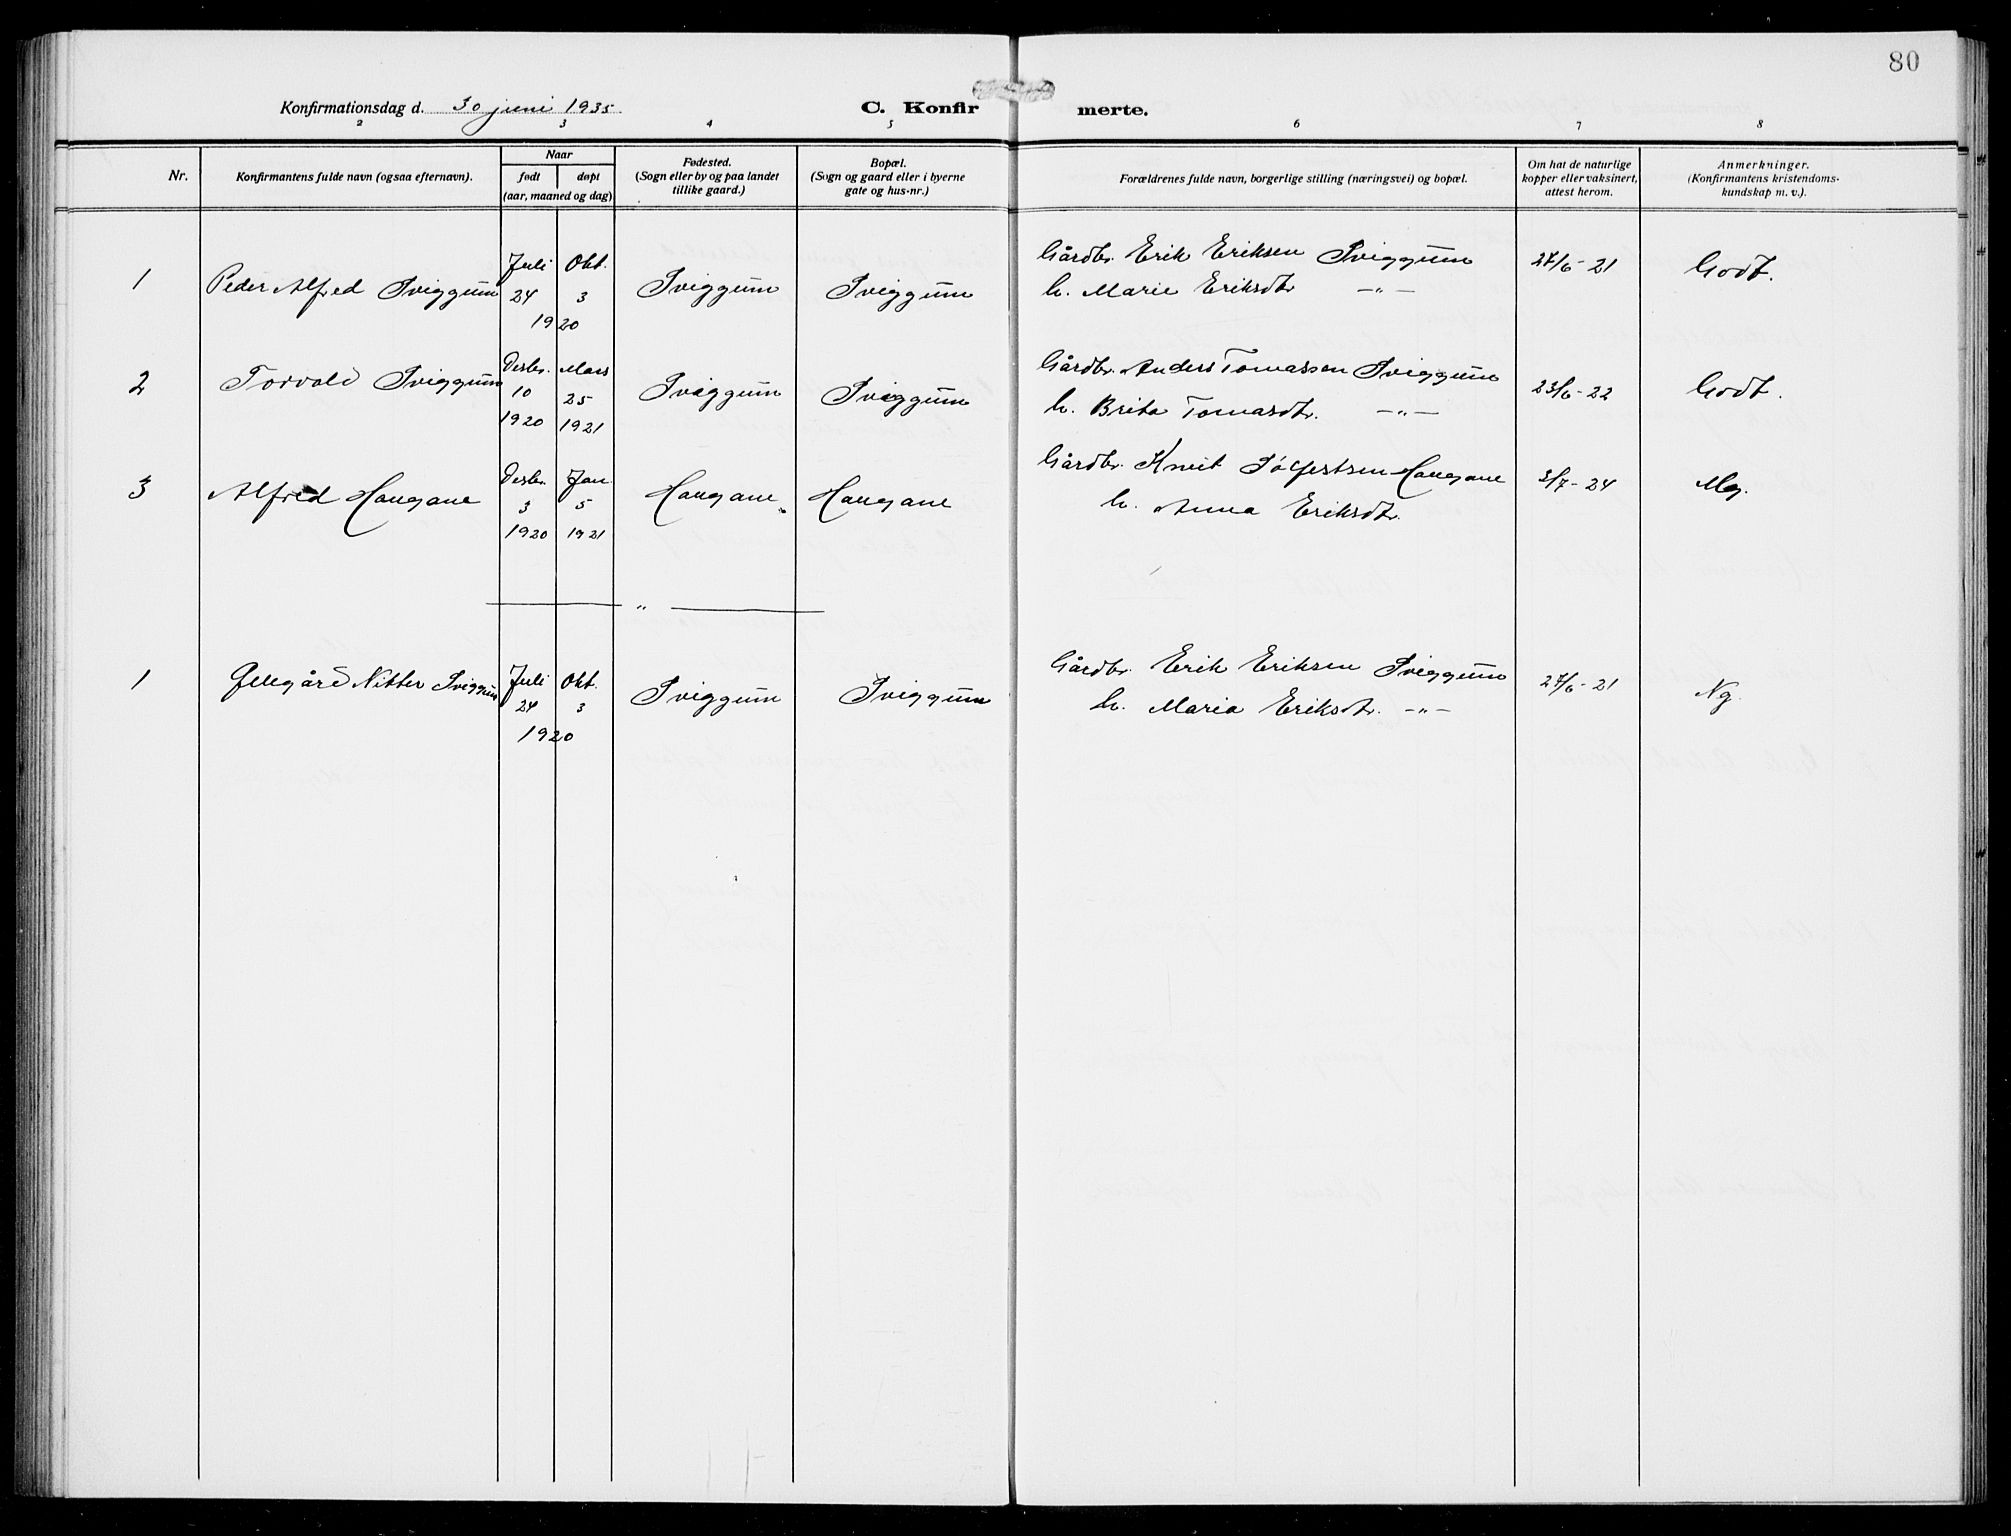 80
Konfirmationsdag d. 30 juni 1935
C. Konfir merte.
2 3 4 5 6 7 8
Nr.
Konfirmantens fulde navn (ogsaa efternavn).
Naar
født døpt
(aar, maaned og dag)
Fødested.
(Sogn eller by og paa landet
tillike gaard.)
Bopæl.
(Sogn og gaard eller i byerne
gate og hus-nr.)
Forældrenes fulde navn, borgerlige stilling (næringsvei) og bopæl.
Om hat de naturlige
kopper eller vaksinert,
attest herom.
Anmerkninger.
(Konfirmantens kristendoms-
kundskap m. v.).
1 Peder Alfred Sviggum
Juli 24 Okt. 3
1920
Sviggum Sviggum
Gårdbr. Erik Eriksen Sviggum
h. Marie Eriksdtr. —"—
27/6-21 Godt.
2 Torvald Sviggum
Desbr. 10 1920
Mars 25 1921
Sviggum Sviggum
Gårdbr. Anders Tomassen Sviggum
h. Brita Tomasdtr. —"—
23/6-22 Godt.
3 Alfred Haugane
Desbr. 3 1920
Jan. 5 1921
Haugane Haugane
Gårdbr. Knut Haugane
h. Anna Eriksdtr.
3/7-24 Mg.
— " —
1 Nitter Sviggum
Juli 24 Okt. 3
1920
Sviggum Sviggum
Gårdbr. Erik Eriksen Sviggum
h. Maria Eriksdtr. —"—
27/6-21 Ng.